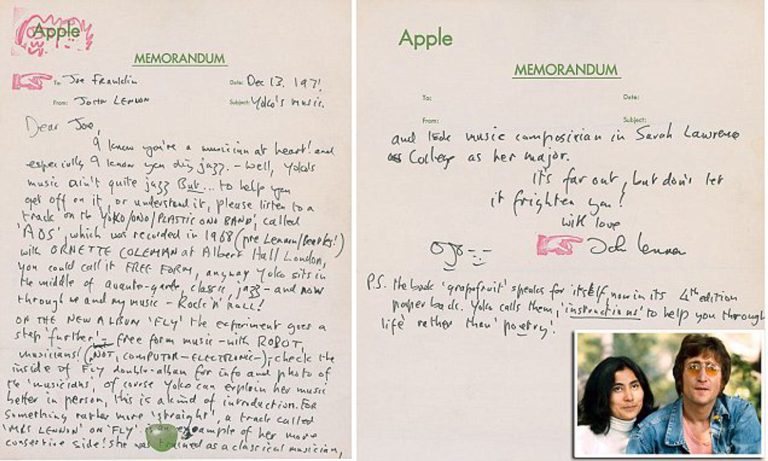 Apple
MEMORANDUM
To: Joe Franklin Date: Dec 13. 1971.
From: John Lennon Subject: Yoko's music.
Dear Joe,
I know you're a musician at heart! and
especially I know you dig jazz. – Well, Yoko's
music ain't quite jazz But... to help you
get off on it, or understand it, please listen to a
track on the 'YOKO/ONO/PLASTIC ONO BAND', called
'AOS', which was recorded in 1968 (pre Lennon/Beatles!)
with ORNETTE COLEMAN at Albert Hall London,
you could call it FREE FORM, anyway Yoko sits in
the middle of avante-garde, classic, jazz – and now
through me and my music – Rock 'n' Roll!
ON THE NEW ALBUM 'FLY' the experiment goes a
step further – free form music – with ROBOT,
musicians! (NOT, COMPUTER – ELECTRONIC –); check the
inside of FLY double-album for info and photo of
the 'musicians', of course Yoko can explain her music
better in person, this is a kind of introduction. FOR
something rather more 'straight', a track called
'MRS LENNON' on 'FLY' is an example of her more
conservative side! she was trained as a classical musician,
Apple
MEMORANDUM
To: Date:
From: Subject:
and took music composition in Sarah Lawrence
College as her major.
It's far out, but don't let
it frighten you!
with love
John Lennon
P.S. the book 'grapefruit' speaks for itself, now in its 4th edition
paperback. Yoko calls them, 'instructions' to help you through
life rather than 'poetry'!